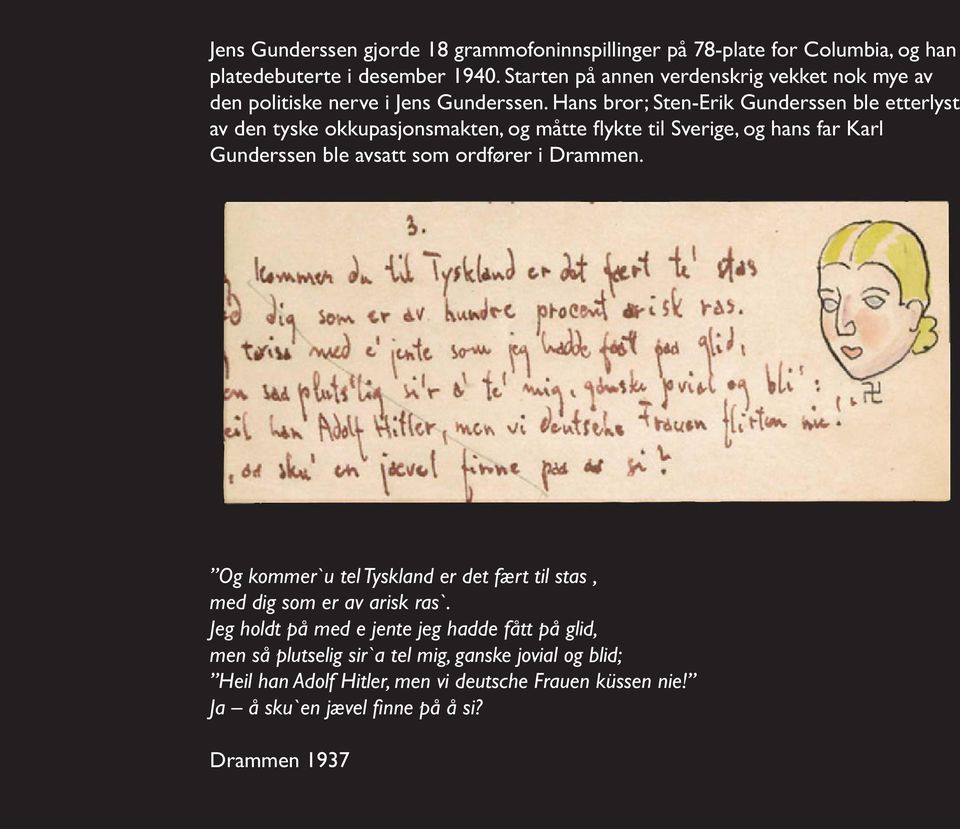 Jens Gunderssen gjorde 18 grammofoninnspillinger på 78-plate for Columbia, og han
platedebuterte i desember 1940. Starten på annen verdenskrig vekket nok mye av
den politiske nerve i Jens Gunderssen. Hans bror; Sten-Erik Gunderssen ble etterlyst
av den tyske okkupasjonsmakten, og måtte flykte til Sverige, og hans far Karl
Gunderssen ble avsatt som ordfører i Drammen.
3.
kommer du til Tyskland er det fært te' stas
dig som er av hundre procent arisk ras.
med e' jente som jeg hadde faat paa glid,
en saa pluts'lig si'r a' te' mig, ganske jovial og bli':
eil han Adolf Hitler, men vi deutsche Frauen flirten nie!"
sku' en jævel finne paa aa si?
”Og kommer`u tel Tyskland er det fært til stas ,
med dig som er av arisk ras`.
Jeg holdt på med e jente jeg hadde fått på glid,
men så plutselig sir`a tel mig, ganske jovial og blid;
”Heil han Adolf Hitler, men vi deutsche Frauen küssen nie!”
Ja – å sku`en jævel finne på å si?
Drammen 1937